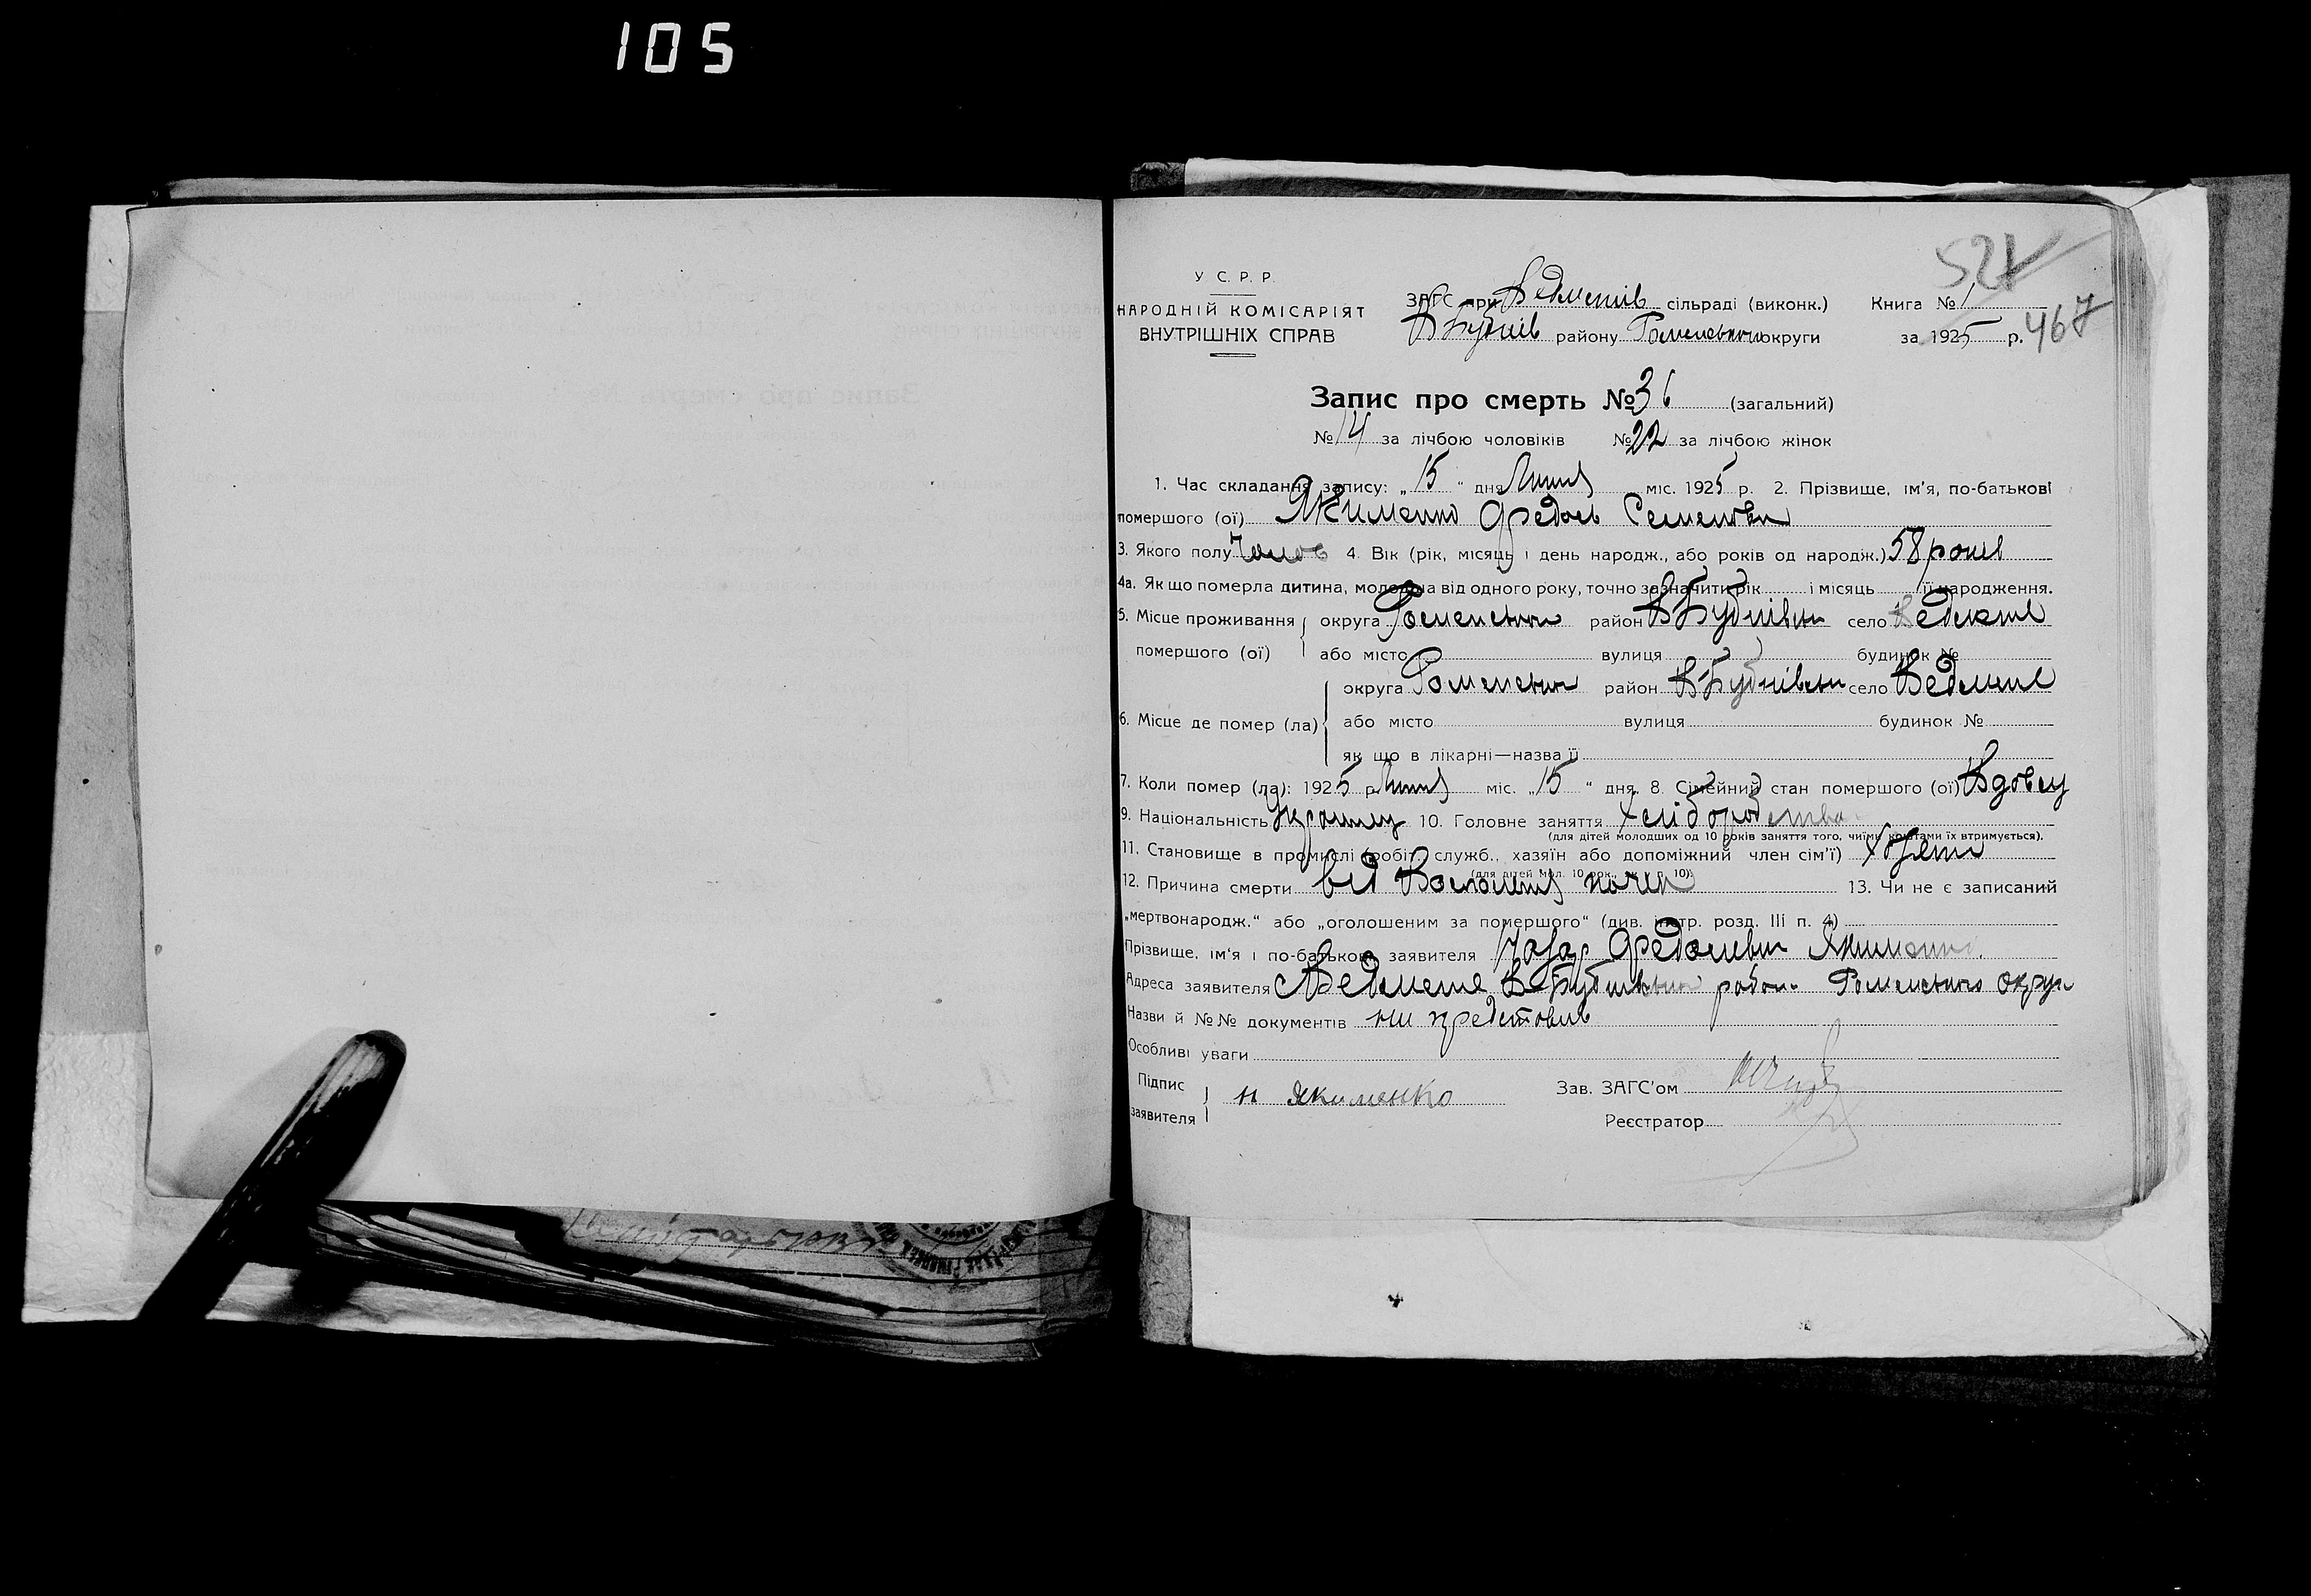 105
521
467
У С. Р. Р.
НАРОДНІЙ КОМІСАРІЯТ
ВНУТРІШНІХ СПРАВ
ЗАГС при Ведменів сільраді (виконк.) Книга № 1
В Бубнів району Роменської округи за 1925 р.
Запис про смерть № 36 (загальний)
№ 14 за лічбою чоловіків № 22 за лічбою жінок
1. Час складання запису: „ 15 “ дня міс. 1925 р. 2. Прізвище, ім'я, по-батькові
помершого (ої) Якименко Федось Семенови
3. Якого полу Чолов 4. Вік (рік, місяць і день народж., або років од народж.) 58 років
4а. Як що померла дитина, молодша від одного року, точно зазначити рік і місяць її народження.
5. Місце проживання округа Роменськи район В Бубнівськи село Ведмеже
помершого (ої) або місто вулиця будинок №
округа Роменськи район В Бубнівськи село Ведмеже
6. Місце де помер (ла) або місто вулиця будинок №
як що в лікарні—назва її
7. Коли помер (ла): 1925 р. міс. „ 15 “ дня. 8. Сімейний стан помершого (ої) Вдовец
9. Національність Українец 10. Головне заняття хліборобства
(для дітей молодших од 10 років заняття того, чиїми коштами їх втримується).
11. Становище в промислі (робіт., служб., хазяїн або допоміжний член сім'ї)
(для дітей мол. 10 рок., як п. 10)
12. Причина смерти від почек 13. Чи не є записаний
„мертвонародж.“ або „оголошеним за помершого“ (див. інстр. розд. III п. 4)
Прізвище, ім'я і по-батькові заявителя Назар Федосиевич Якименко
Адреса заявителя с Ведмеже В-Бубнівськи район Роменського округи
Назви й №№ документів ни представив
Особливі уваги
Підпис
заявителя н якименко Зав. ЗАГС'ом
Реєстратор